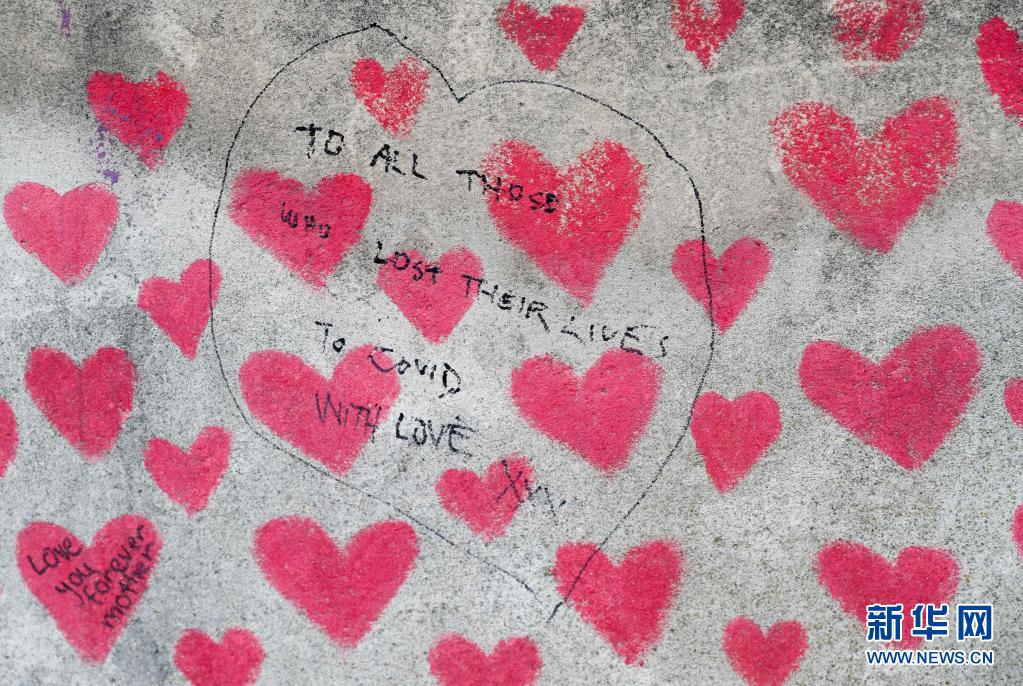 TO ALL THOSE
WHO LOST THEIR LIVES
To COVID
WITH LOVE
Love
you
forever
mother
新华网
WWW.NEWS.CN